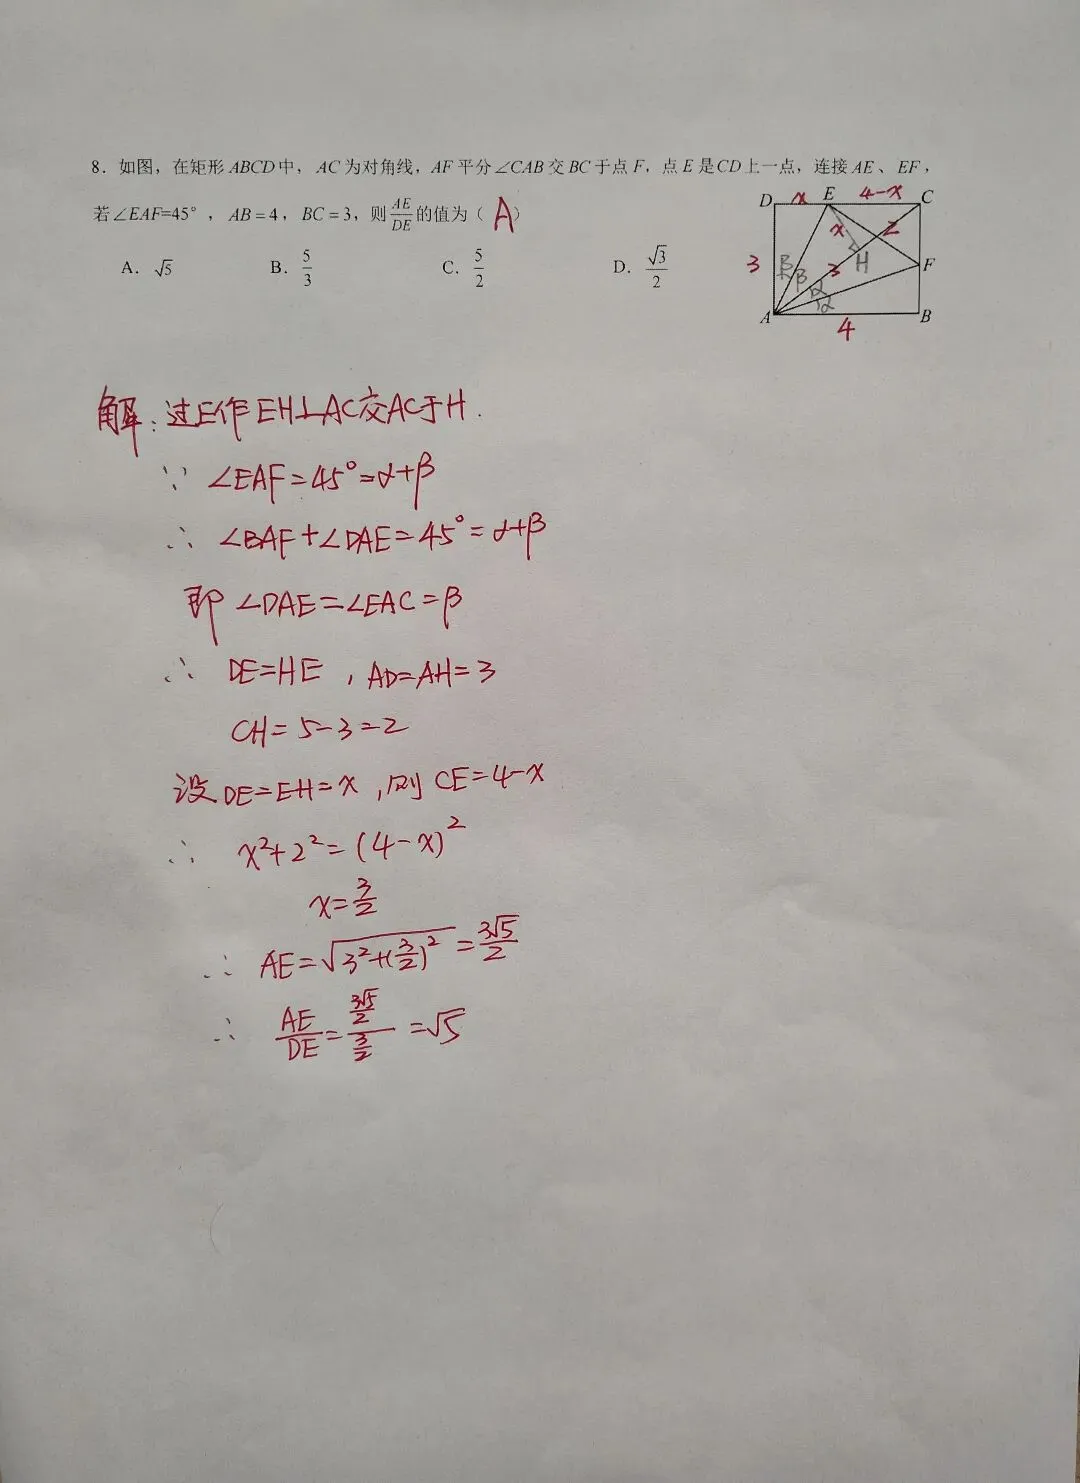 8．如图，在矩形ABCD中，AC为对角线，AF平分∠CAB交BC于点F，点E是CD上一点，连接AE、EF，
若∠EAF=45°，AB=4，BC=3，则AE/DE的值为（ A ）
A．√5 B．5/3 C．5/2 D．√3/2
D x E 4-x C
x 2
3 β β 3 H F
α α
A 4 B
解：过E作EH⊥AC交AC于H.
∵ ∠EAF=45°=α+β
∴ ∠BAF+∠DAE=45°=α+β
即 ∠DAE=∠EAC=β
∴ DE=HE，AD=AH=3
CH=5-3=2
设DE=EH=x，则CE=4-x
∴ x²+2²=(4-x)²
x=3/2
∴ AE=√(3²+(3/2)²)=3√5/2
∴ AE/DE=(3√5/2)/(3/2)=√5